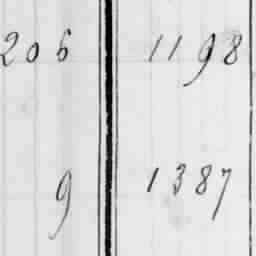 206 1198
9 1387